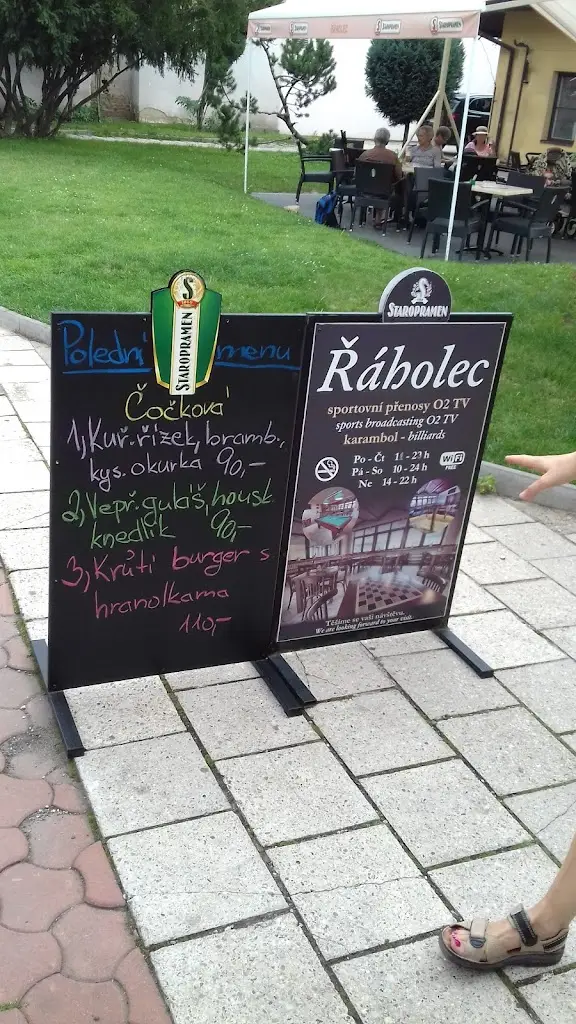 STAROPRAMEN
STAROPRAMEN
Polední menu
Čočková
1, Kuř. řízek, bramb.,
kys. okurka 90,-
2, Vepř. guláš, housk.
knedlík 90,-
3, Krůtí burger s
hranolkama
110,-
S
STAROPRAMEN
STAROPRAMEN
Řáholec
sportovní přenosy O2 TV
sports broadcasting O2 TV
karambol - billiards
Po - Čt
Pá - So 10 - 24 h
Ne 14 - 22 h
WiFi
FREE
Těšíme se vaši návštěvu.
We are looking forward to your visit.